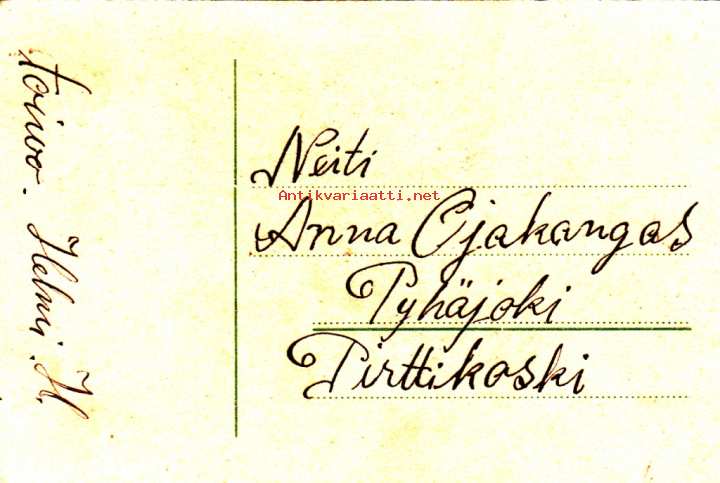 toivoo. Helmi. H.
Neiti
Antikvariaatti.net
Anna Ojakangas
Pyhäjoki
Pirttikoski